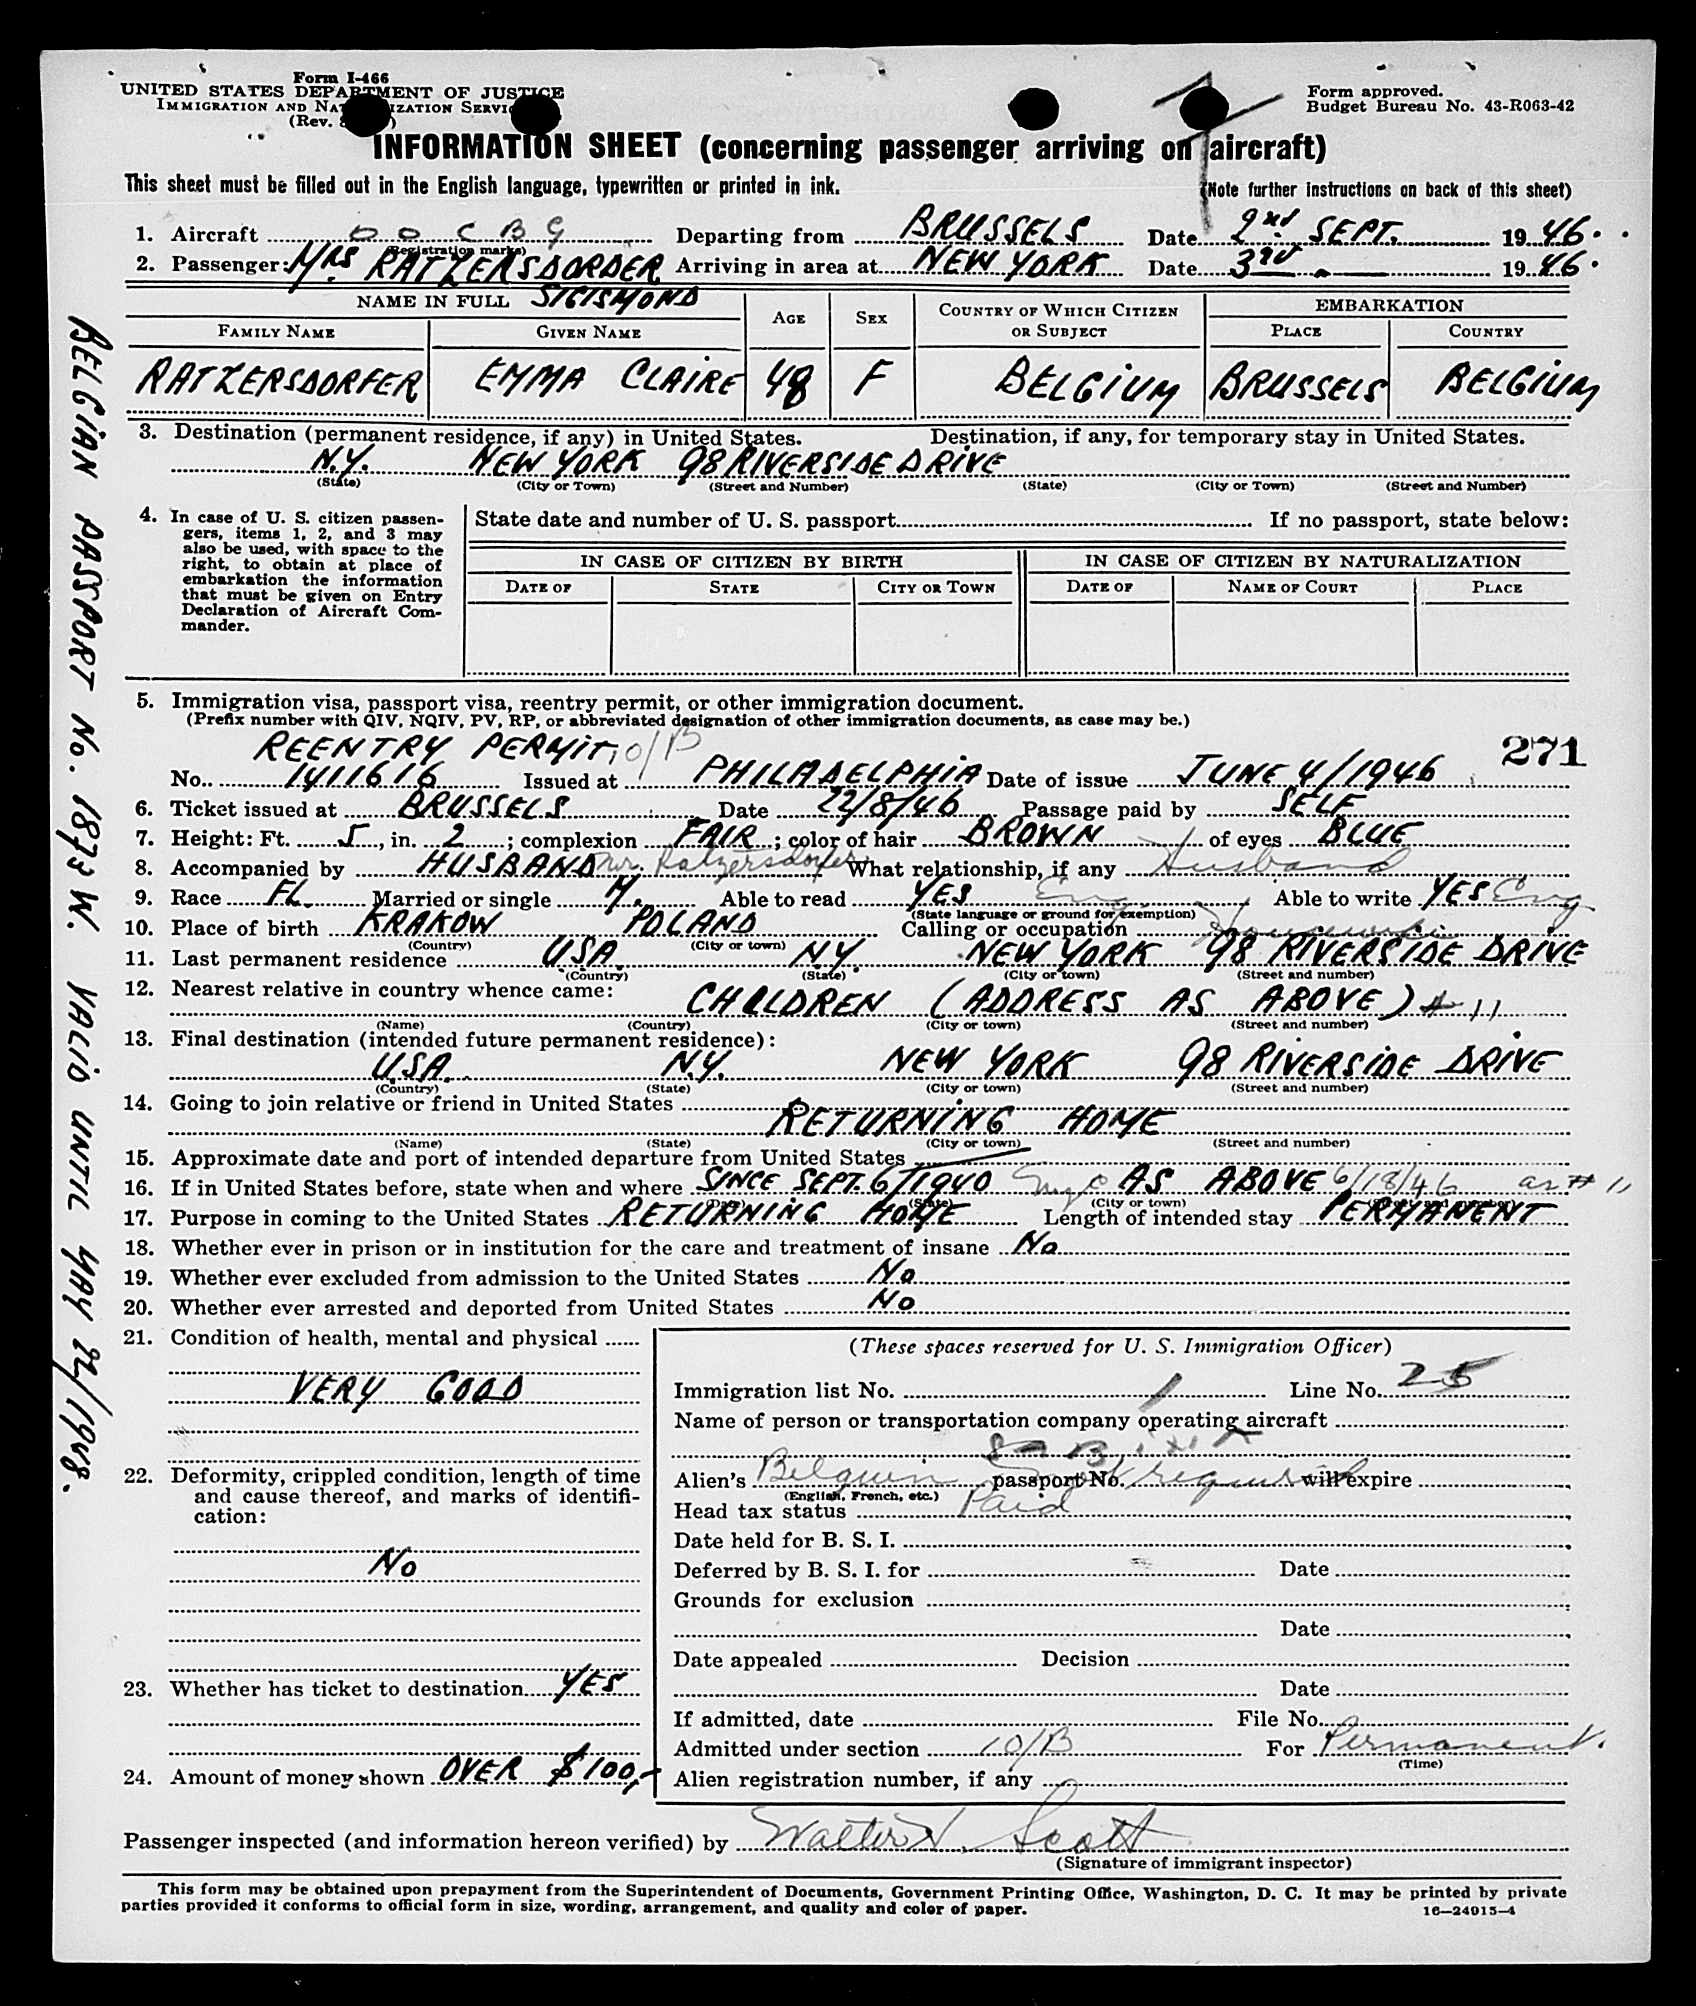 Form I-466
UNITED STATES DEPARTMENT OF JUSTICE
IMMIGRATION AND NATURALIZATION SERVICE
(Rev.
Form approved.
Budget Bureau No. 43-R063-42
INFORMATION SHEET (concerning passenger arriving on aircraft)
This sheet must be filled out in the English language, typewritten or printed in ink.
(Note further instructions on back of this sheet)
1. Aircraft OO CBG Departing from BRUSSELS Date 2nd SEPT. 1946.
(Registration marks)
2. Passenger: MRS RATZERSDORDER Arriving in area at NEW YORK Date 3rd 1946.
NAME IN FULL SIGISMOND
FAMILY NAME GIVEN NAME AGE SEX COUNTRY OF WHICH CITIZEN OR SUBJECT EMBARKATION PLACE COUNTRY
RATZERSDORFER EMMA CLAIRE 48 F BELGIUM BRUSSELS BELGIUM
3. Destination (permanent residence, if any) in United States. Destination, if any, for temporary stay in United States.
N.Y. NEW YORK 98 RIVERSIDE DRIVE
(State) (City or Town) (Street and Number) (State) (City or Town) (Street and Number)
4. In case of U. S. citizen passen-
gers, items 1, 2, and 3 may
also be used, with space to the
right, to obtain at place of
embarkation the information
that must be given on Entry
Declaration of Aircraft Com-
mander.
State date and number of U. S. passport If no passport, state below:
IN CASE OF CITIZEN BY BIRTH IN CASE OF CITIZEN BY NATURALIZATION
DATE OF STATE CITY OR TOWN DATE OF NAME OF COURT PLACE
5. Immigration visa, passport visa, reentry permit, or other immigration document.
(Prefix number with QIV, NQIV, PV, RP, or abbreviated designation of other immigration documents, as case may be.)
REENTRY PERMIT, 10/B 271
No. 1411616 Issued at PHILADELPHIA Date of issue JUNE 4/1946
6. Ticket issued at BRUSSELS Date 22/8/46 Passage paid by SELF
7. Height: Ft. 5, in. 2; complexion FAIR; color of hair BROWN of eyes BLUE
8. Accompanied by HUSBAND Mr. Ratzersdorfer What relationship, if any Husband
9. Race FL. Married or single M. Able to read YES Eng Able to write YES Eng
(State language or ground for exemption)
10. Place of birth KRAKOW POLAND Calling or occupation Housewife
(Country) (City or town)
11. Last permanent residence USA N.Y. NEW YORK 98 RIVERSIDE DRIVE
(Country) (State) (City or town) (Street and number)
12. Nearest relative in country whence came:
CHILDREN (ADDRESS AS ABOVE) # 11
(Name) (Country) (City or town) (Street and number)
13. Final destination (intended future permanent residence):
U.S.A. N.Y. NEW YORK 98 RIVERSIDE DRIVE
(Country) (State) (City or town) (Street and number)
14. Going to join relative or friend in United States
RETURNING HOME
(Name) (State) (City or town) (Street and number)
15. Approximate date and port of intended departure from United States
16. If in United States before, state when and where SINCE SEPT. 6/1940 NYC AS ABOVE 6/18/46 as # 11
(Date) (State) (City or town) (Street and number)
17. Purpose in coming to the United States RETURNING HOME Length of intended stay PERMANENT
18. Whether ever in prison or in institution for the care and treatment of insane No
19. Whether ever excluded from admission to the United States No
20. Whether ever arrested and deported from United States No
21. Condition of health, mental and physical
VERY GOOD
22. Deformity, crippled condition, length of time
and cause thereof, and marks of identifi-
cation:
No
23. Whether has ticket to destination YES
24. Amount of money shown OVER $100,-
(These spaces reserved for U. S. Immigration Officer)
Immigration list No. 1 Line No. 25
Name of person or transportation company operating aircraft
SABENA
Alien's Belgium passport No. Not required will expire
(English, French, etc.)
Head tax status Paid
Date held for B. S. I.
Deferred by B. S. I. for Date
Grounds for exclusion
Date
Date appealed Decision
Date
If admitted, date File No.
Admitted under section 10/B For Permanent.
(Time)
Alien registration number, if any
Passenger inspected (and information hereon verified) by Walter Scott
(Signature of immigrant inspector)
This form may be obtained upon prepayment from the Superintendent of Documents, Government Printing Office, Washington, D. C. It may be printed by private
parties provided it conforms to official form in size, wording, arrangement, and quality and color of paper.
16—24915-4
BELGIAN PASSPORT No. 1873 W. VALID UNTIL MAY 22/1948.